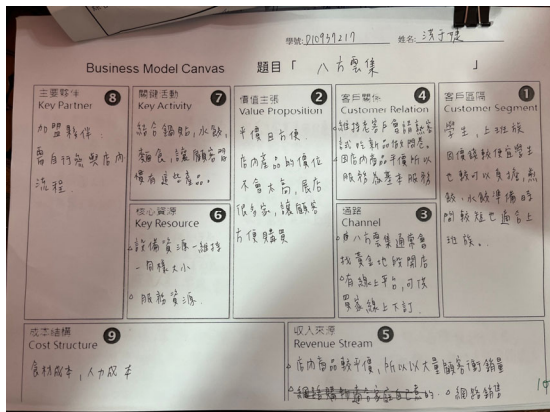 學號: D10937217 姓名:
Business Model Canvas 題目「 八方雲集 」
主要夥伴
Key Partner
8
加盟夥伴:
需自行參與店內
流程.
關鍵活動
Key Activity
7
結合鍋貼,水餃,
麵食,讓顧客習
慣有這些產品.
核心資源
Key Resource
6
設備資源-維持
一同樣大小
服務資源.
價值主張
Value Proposition
2
平價且方便.
店內產品的價位
不會太高,展店
很多家,讓顧客
方便購買
客戶關係
Customer Relation
4
維持老客戶會請熟客
試吃新品做問卷.
因店內商品平價所以
服務為基本服務
通路
Channel
3
八方雲集通常會
找黃金地段開店
有線上平台,可供
買家線上下訂.
客戶區隔
Customer Segment
1
學生,上班族
因價錢較便宜學生
也較可以負擔,煎
餃,水餃準備時
間較短也適合上
班族..
成本結構
Cost Structure
9
食材成本,人力成本
收入來源
Revenue Stream
5
店內商品較平價,所以以大量顧客衝銷量
網路銷售